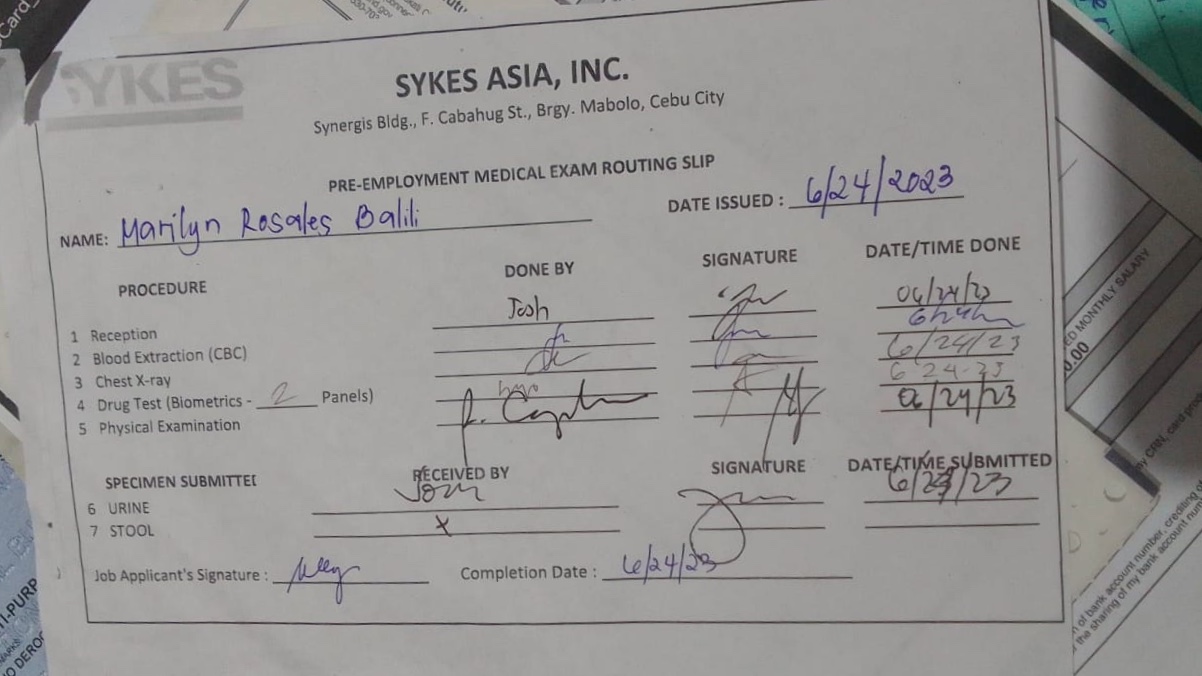 Card
SYKES
SYKES ASIA, INC.
Synergis Bldg., F. Cabahug St., Brgy. Mabolo, Cebu City
PRE-EMPLOYMENT MEDICAL EXAM ROUTING SLIP
NAME: Marilyn Rosales Balili DATE ISSUED : 6/24/2023
PROCEDURE DONE BY SIGNATURE DATE/TIME DONE
1 Reception Josh 06/24/23
2 Blood Extraction (CBC)
3 Chest X-ray 6/24/23
4 Drug Test (Biometrics - 2 Panels) 6 24-23
5 Physical Examination 06/24/23
SPECIMEN SUBMITTED RECEIVED BY SIGNATURE DATE/TIME SUBMITTED
6 URINE
7 STOOL x
Job Applicant's Signature : Completion Date : 6/24/23
ED MONTHLY SALARY
0.00
my CRN, card
of bank account number, crediting of
the sharing of my bank account num
TI-PURP
O DEROG